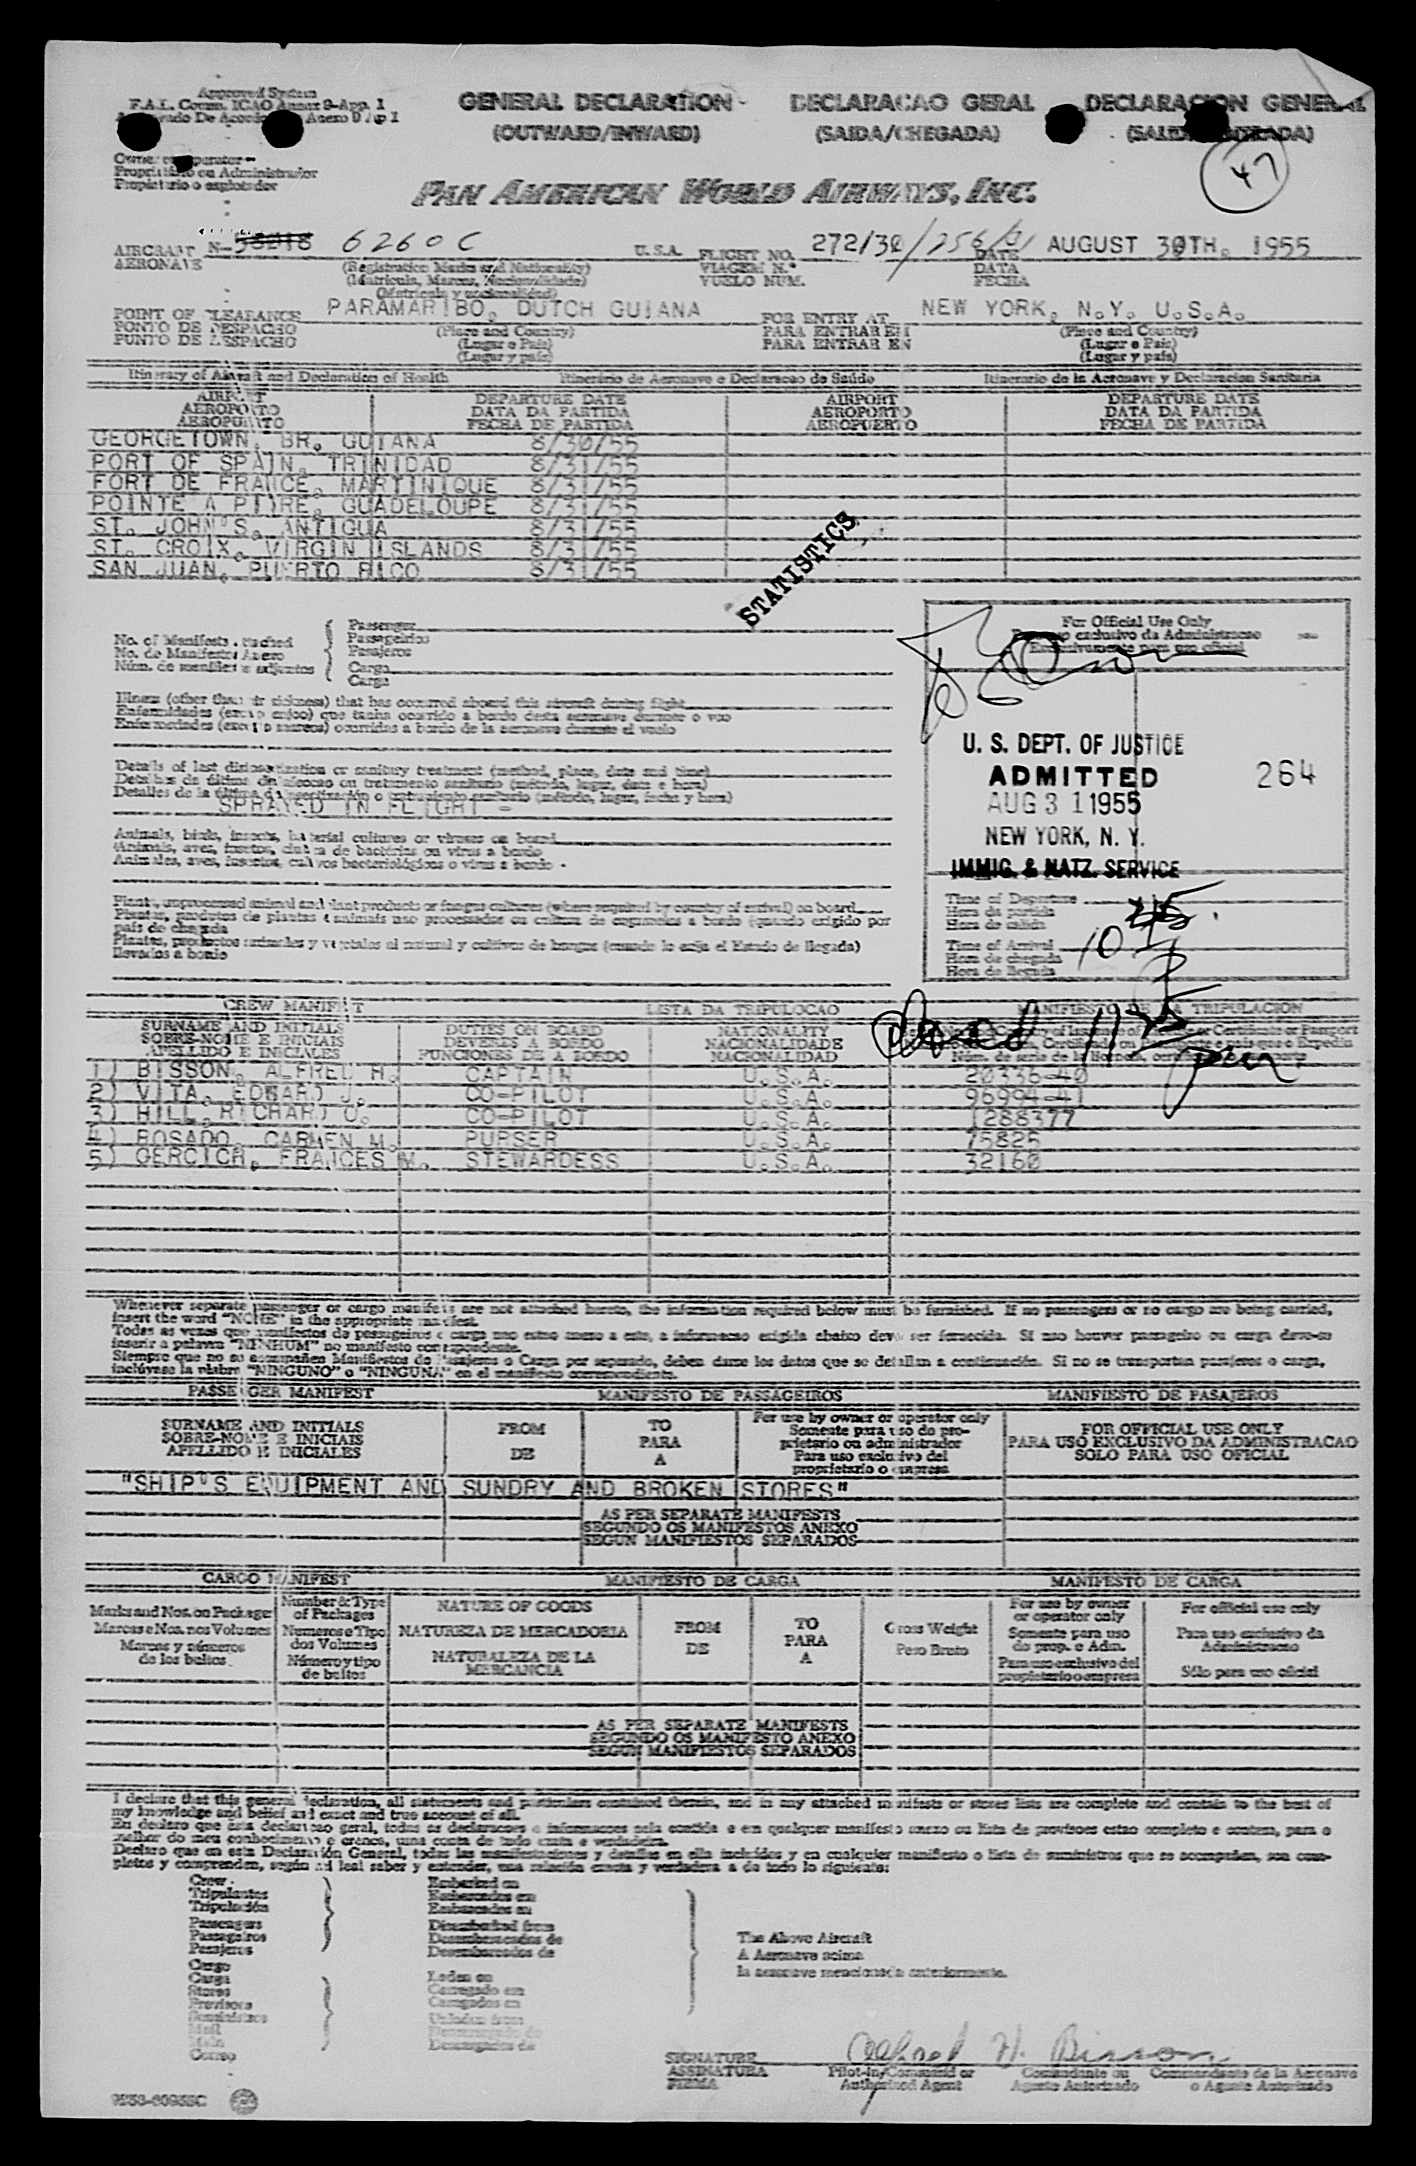 Approved System
F.A.L. Comm. ICAO Annex 9-App. 1
GENERAL DECLARATION
DECLARACAO GERAL
DECLARACION GENERAL
(OUTWARD/INWARD)
(SAIDA/CHEGADA)
47
Propietario o explotador
PAN AMERICAN WORLD AIRWAYS, INC.
AIRCRAFT N-38018 6260C U.S.A. FLIGHT NO. 272/30/256/31 DATE AUGUST 30TH, 1955
AERONAVE (Registration Marks and Nationality) VIAGEM N.º DATA
(Matricula, Marcas, Nacionalidade) VUELO NUM. FECHA
(Matricula y nacionalidad)
POINT OF CLEARANCE PARAMARIBO, DUTCH GUIANA FOR ENTRY AT NEW YORK, N.Y. U.S.A.
PONTO DE DESPACHO (Place and Country) PARA ENTRAR EM (Place and Country)
PUNTO DE DESPACHO (Lugar e País) PARA ENTRAR EN (Lugar e País)
(Lugar y país) (Lugar y país)
Itinerary of Aircraft and Declaration of Health Itinerário de Aeronave e Declaracao de Saúde Itinerario de la Aeronave y Declaracion Sanitaria
AIRPORT DEPARTURE DATE AIRPORT DEPARTURE DATE
AEROPORTO DATA DA PARTIDA AEROPORTO DATA DA PARTIDA
AEROPUERTO FECHA DE PARTIDA AEROPUERTO FECHA DE PARTIDA
GEORGETOWN, BR. GUIANA 8/30/55
PORT OF SPAIN, TRINIDAD 8/31/55
FORT DE FRANCE, MARTINIQUE 8/31/55
POINTE A PITRE, GUADELOUPE 8/31/55
ST. JOHN'S, ANTIGUA 8/31/55
ST. CROIX, VIRGIN ISLANDS 8/31/55
SAN JUAN, PUERTO RICO 8/31/55
STATISTICS
No. of Manifests Attached Passenger
No. de Manifestos Anexo Passageiros
Pasajeros
Núm. de manifiestos adjuntos Cargo
Carga
For Official Use Only
Illness (other than air sickness) that has occurred aboard this aircraft during flight
Enfermidades (exceto enjoo) que tenha ocorrido a bordo desta aeronave durante o voo
Enfermedades (excepto mareos) ocurridas a bordo de la aeronave durante el vuelo
Details of last disinsectization or sanitary treatment (method, place, date and time)
SPRAYED IN FLIGHT -
U. S. DEPT. OF JUSTICE
ADMITTED 264
AUG 31 1955
NEW YORK, N. Y.
IMMIG. & NATZ. SERVICE
Animals, birds, insects, bacterial cultures or viruses on board
Animais, aves, insetos, cultura de bactérias ou virus a bordo
Animales, aves, insectos, cultivos bacteriológicos o virus a bordo
Plants, unprocessed animal and plant products or fungus cultures (where required by country of arrival) on board
país de chegada
llevados a bordo
Time of Departure
Hora da partida
Hora de salida
Time of Arrival 10 45
Hora de chegada
Hora de llegada
closed 11 25 pm
CREW MANIFEST LISTA DA TRIPULOCAO MANIFIESTO DE LA TRIPULACION
SURNAME AND INITIALS DUTIES ON BOARD NATIONALITY
SOBRE-NOME E INICIAIS DEVERES A BORDO NACIONALIDADE
APELLIDO E INICIALES FUNCIONES DE A BORDO NACIONALIDAD
1) BISSON, ALFRED H. CAPTAIN U.S.A. 20336-40
2) VITA, EDWARD J. CO-PILOT U.S.A. 96994-41
3) HILL, RICHARD O. CO-PILOT U.S.A. 1288377
4) ROSADO, CARMEN M. PURSER U.S.A. 75825
5) GERCICH, FRANCES M. STEWARDESS U.S.A. 32160
Whenever separate passenger or cargo manifests are not attached hereto, the information required below must be furnished. If no passengers or no cargo are being carried,
insert the word "NONE" in the appropriate manifest.
Todas as vezes que manifestos de passageiros e carga nao estao anexo a este, a informacao exigida abaixo deve ser fornecida. Si nao houver passageiro ou carga deve-se
inserir a palavra "NENHUM" no manifesto correspondente.
Siempre que no se acompañen Manifiestos de Pasajeros o Carga por separado, deben darse los datos que se detallan a continuación. Si no se transportan pasajeros o carga,
inclúyase la palabra "NINGUNO" o "NINGUNA" en el manifiesto correspondiente.
PASSENGER MANIFEST MANIFESTO DE PASSAGEIROS MANIFIESTO DE PASAJEROS
SURNAME AND INITIALS FROM TO For use by owner or operator only FOR OFFICIAL USE ONLY
SOBRE-NOME E INICIAIS PARA Somente para uso do pro- PARA USO EXCLUSIVO DA ADMINISTRACAO
APELLIDO E INICIALES DE A prietario ou administrador SOLO PARA USO OFICIAL
Para uso exclusivo del
propietario o empresa
"SHIP'S EQUIPMENT AND SUNDRY AND BROKEN STORES"
AS PER SEPARATE MANIFESTS
SEGUNDO OS MANIFESTOS ANEXO
SEGUN MANIFIESTOS SEPARADOS
CARGO MANIFEST MANIFIESTO DE CARGA MANIFESTO DE CARGA
Marks and Nos. on Packages Number & Type of Packages NATURE OF GOODS FROM TO Gross Weight For use by owner or operator only For official use only
Marcas e Nos. nos Volumes Numeros e Tipo dos Volumes NATUREZA DE MERCADORIA DE PARA Peso Bruto Somente para uso do prop. e Adm. Para uso exclusivo da Administracao
Marcas y números de los bultos Número y tipo de bultos NATURALEZA DE LA MERCANCIA A Para uso exclusivo del propietario o empresa Sólo para uso oficial
AS PER SEPARATE MANIFESTS
SEGUNDO OS MANIFESTO ANEXO
SEGUN MANIFIESTOS SEPARADOS
I declare that this general declaration, all statements and particulars contained therein, and in any attached manifests or stores lists are complete and contain to the best of
my knowledge and belief and exact and true account of all.
Crew Embarked on
Tripulantes Embarcados em
Tripulación Embarcados en
Passengers Disembarked from
Passageiros Desembarcados de
Pasajeros Desembarcados de
The Above Aircraft
A Aeronave acima
la aeronave mencionada anteriormente.
Cargo
Carga Laden on
Stores Carregado em
Cargados en
Correo
SIGNATURE Alfred H. Bisson
ASSINATURA Pilot-in-Command or Comandante ou Commandante de la Aeronave
FIRMA Authorized Agent Agente Autorizado o Agente Autorizado